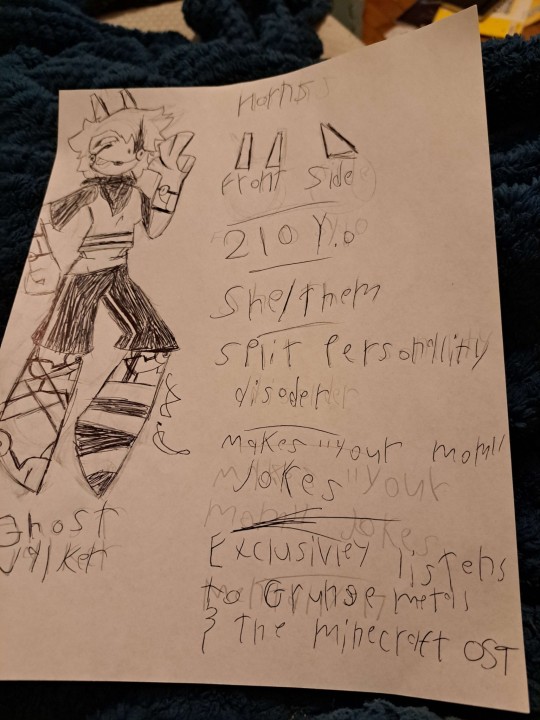 Horns
Front Side
210 Y.o
She/them
Split Personallitiy
disoderer
makes "your mom"
Jokes "your
Jokes
Exclusivley listens
to Grunge metal
& the minecraft OST
Ghost